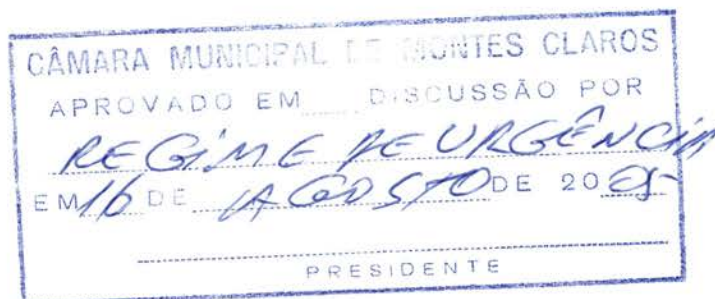 CÂMARA MUNICIPAL DE MONTES CLAROS
APROVADO EM DISCUSSÃO POR
REGIME DE URGÊNCIA
EM 16 DE AGOSTO DE 2005
PRESIDENTE